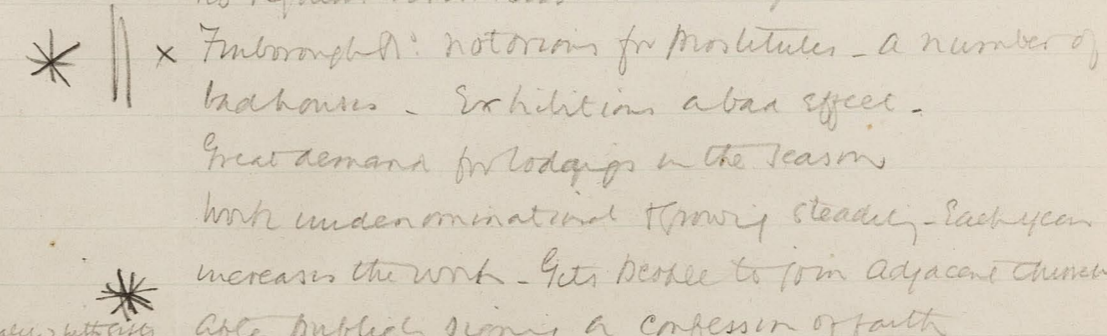 × Finborough Rd: notorious for prostitutes - a number of
bad houses - Exhibitions a bad effect -
Great demand for lodgings in the season
Work undenominational & growing steadily - Each year
increases the work - Gets people to join adjacent church
a confession of faith